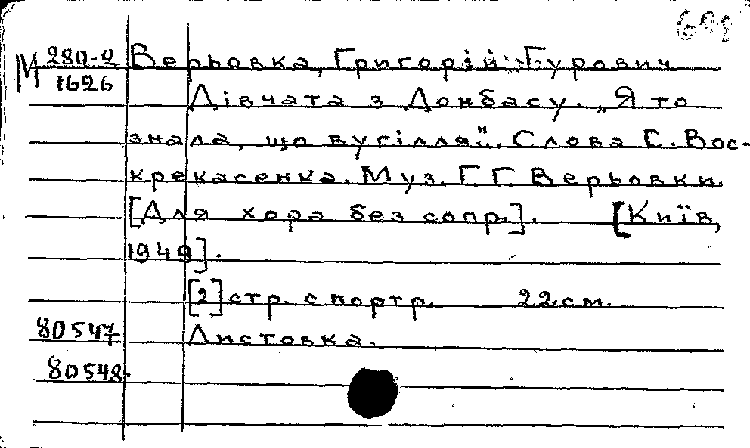 М 280-2
1626
Верьовка, Григорій Гурович
Дівчата з Донбасу. „Я то
знала, що вугілля". Слова Є. Вос-
крекасенка. Муз. Г. Г. Верьовки.
[Для хора без сопр.]. [Київ,
1949].
[2] стр. с портр. 22 см.
80547 Листовка.
80548